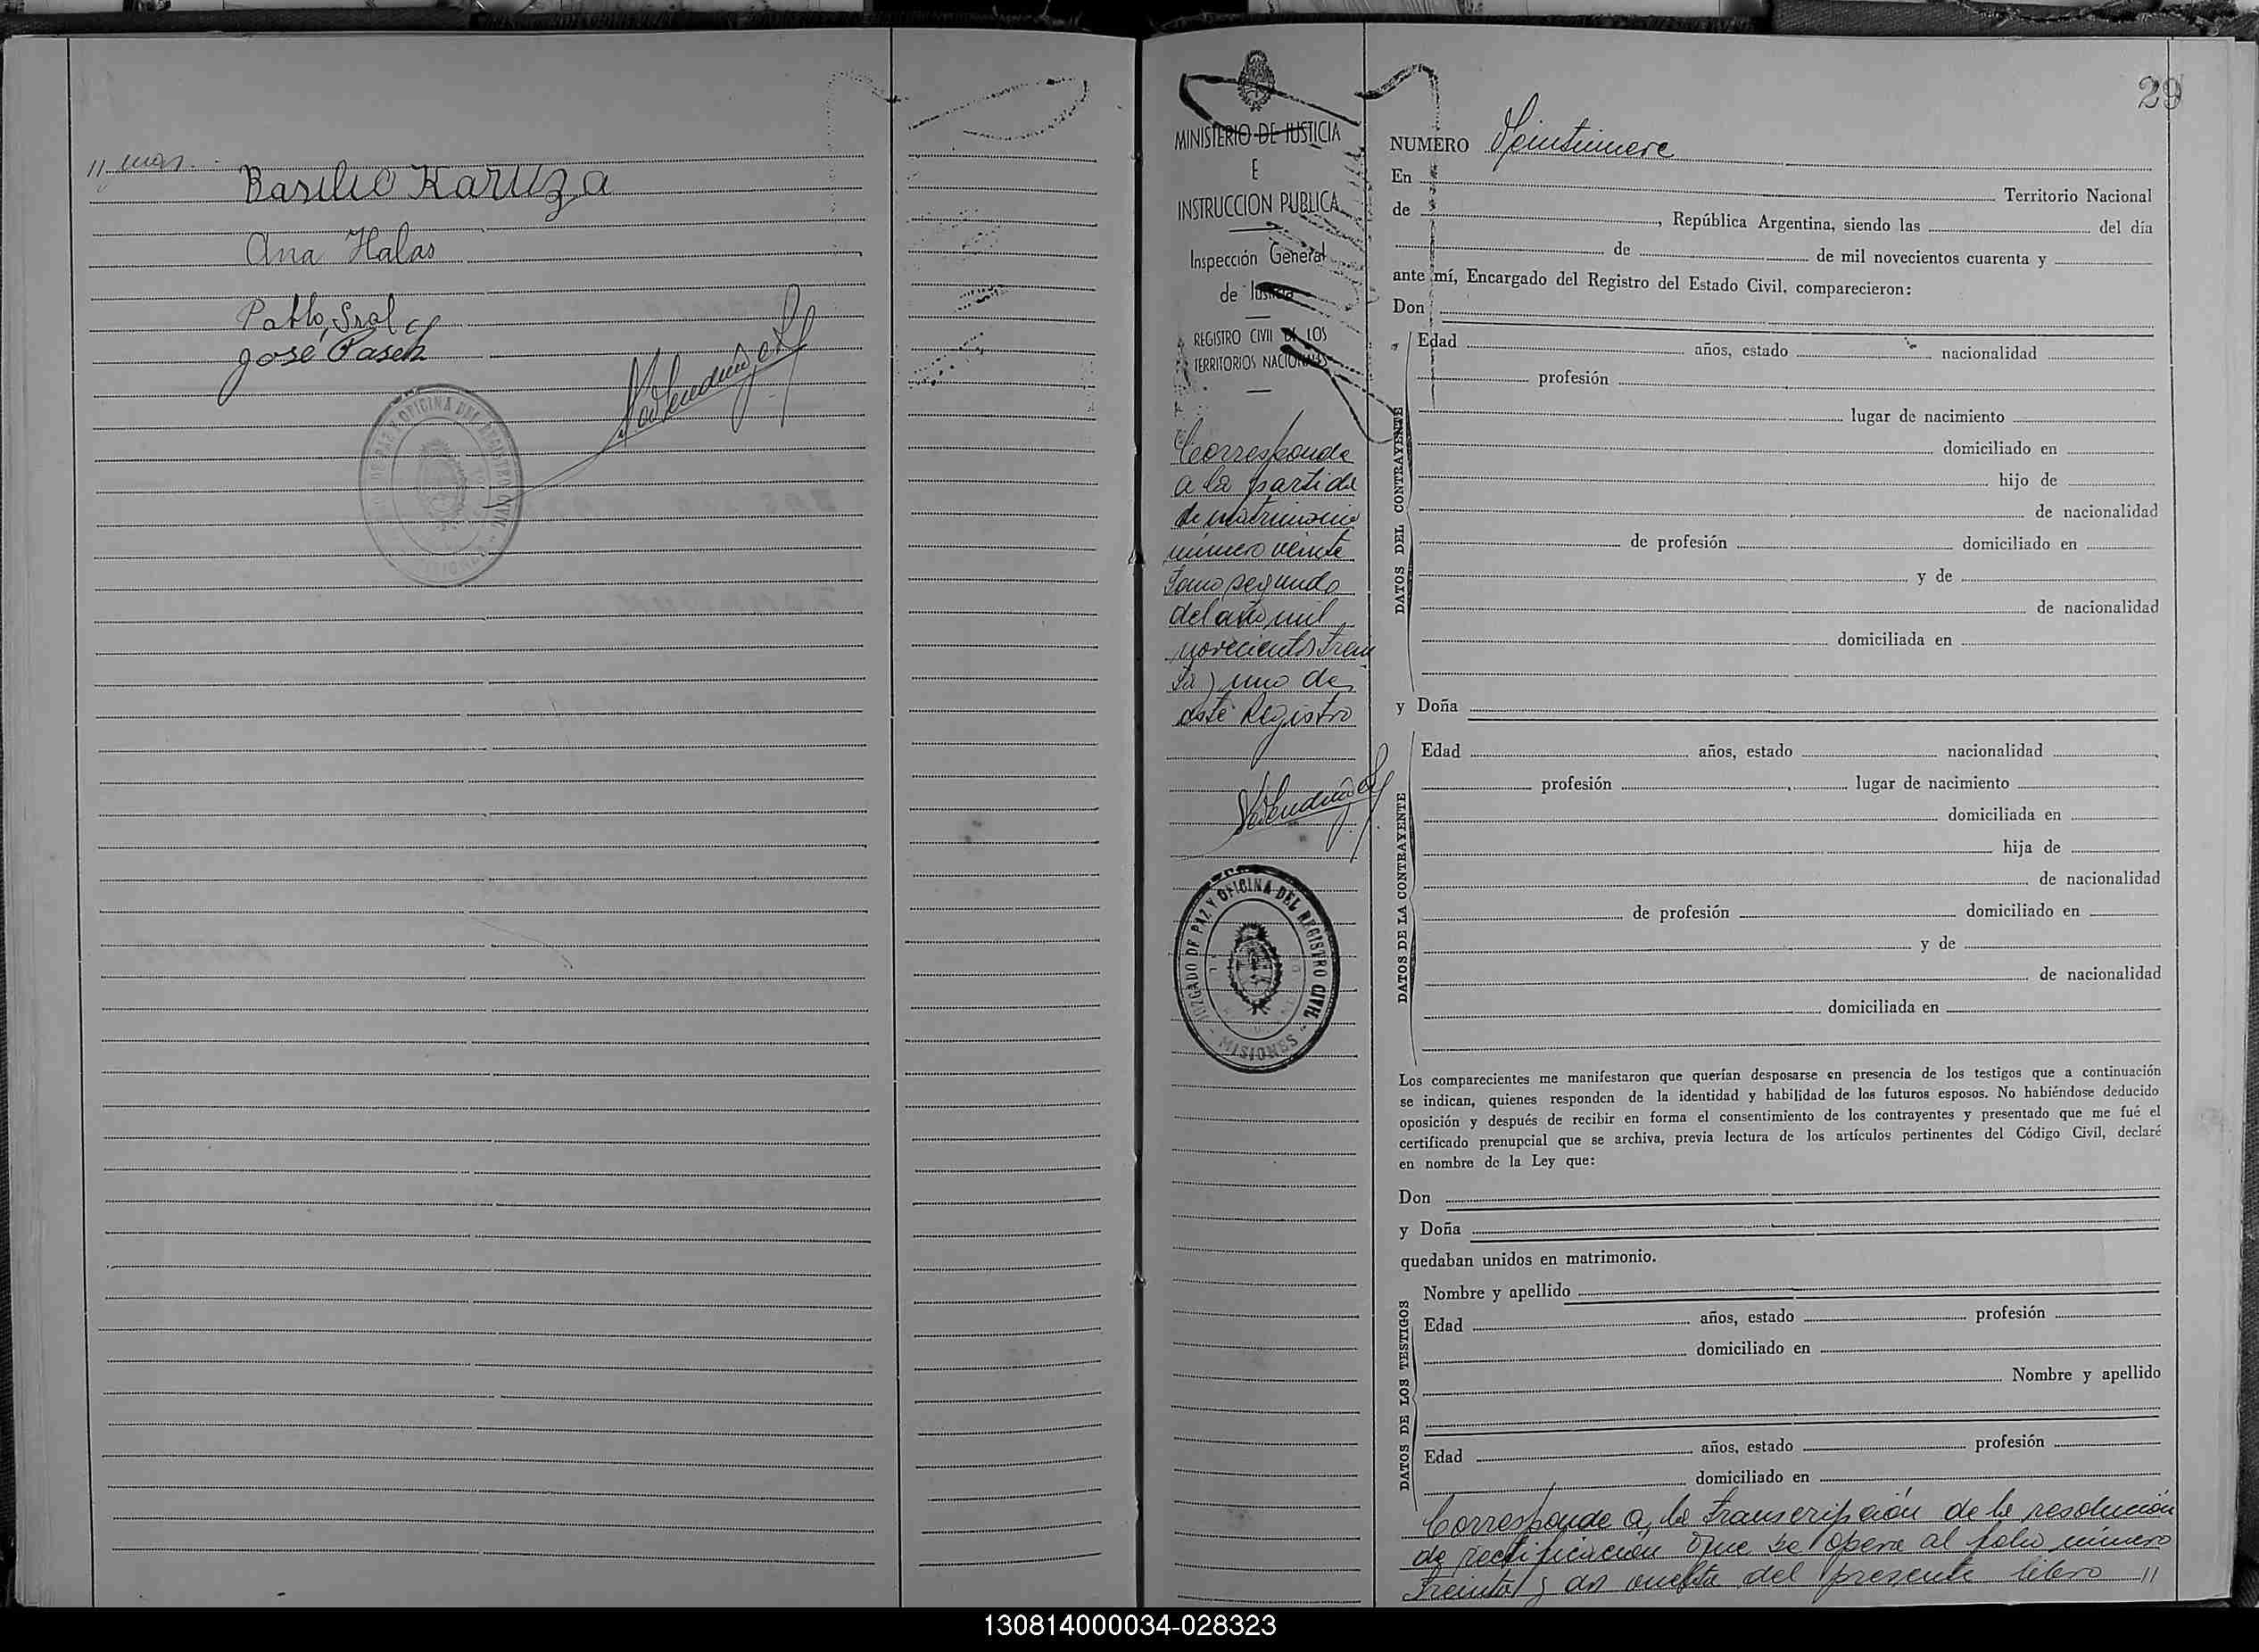 Basilio Karuza
Ana Halas
Pablo Sral
José Pasek
MINISTERIO DE JUSTICIA
E
INSTRUCCION PUBLICA
Inspección General
de Justicia
REGISTRO CIVIL DE LOS
TERRITORIOS NACIONALES
Corresponde
a la partida
de matrimonio
número veinte
tomo segundo
del año mil
novecientos trein
ta y uno de
este Registro
JUZGADO DE PAZ Y OFICINA DEL REGISTRO CIVIL
MISIONES
29
NUMERO Veintinueve
En Territorio Nacional
de , República Argentina, siendo las del día
de de mil novecientos cuarenta y
ante mí, Encargado del Registro del Estado Civil, comparecieron:
Don
DATOS DEL CONTRAYENTE
Edad años, estado nacionalidad
profesión
lugar de nacimiento
domiciliado en
hijo de
de nacionalidad
de profesión domiciliado en
y de
de nacionalidad
domiciliada en
y Doña
DATOS DE LA CONTRAYENTE
Edad años, estado nacionalidad
profesión lugar de nacimiento
domiciliada en
hija de
de nacionalidad
de profesión domiciliado en
y de
de nacionalidad
domiciliada en
Los comparecientes me manifestaron que querían desposarse en presencia de los testigos que a continuación
se indican, quienes responden de la identidad y habilidad de los futuros esposos. No habiéndose deducido
oposición y después de recibir en forma el consentimiento de los contrayentes y presentado que me fué el
certificado prenupcial que se archiva, previa lectura de los artículos pertinentes del Código Civil, declaré
en nombre de la Ley que:
Don
y Doña
quedaban unidos en matrimonio.
DATOS DE LOS TESTIGOS
Nombre y apellido
Edad años, estado profesión
domiciliado en
Nombre y apellido
Edad años, estado profesión
domiciliado en
Corresponde a la transcripción de la resolución
de rectificación que se opera al folio número
treinta y dos vuelta del presente libro //
130814000034-028323